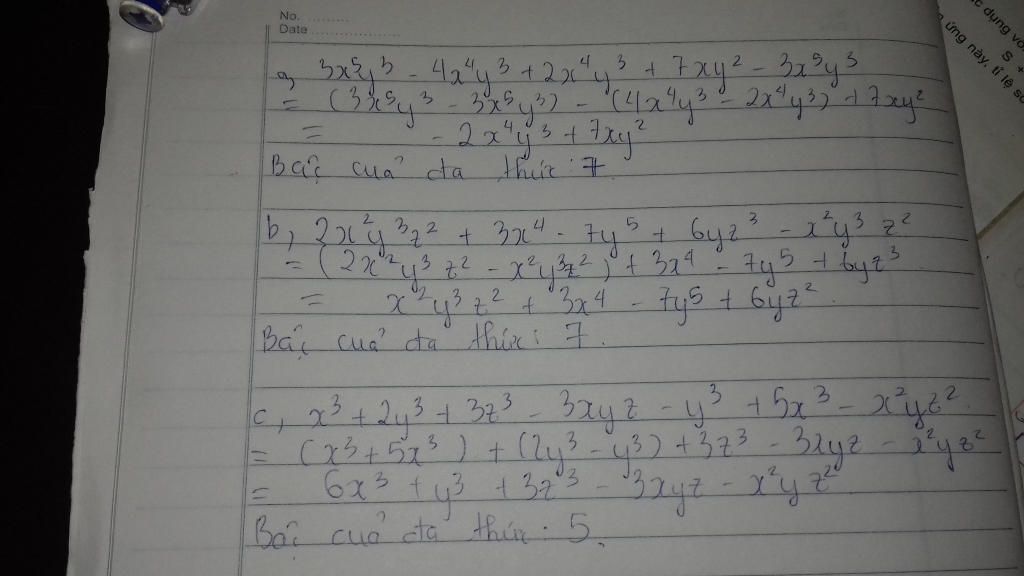 No. ..........
Date ....................
a, 3x⁵y³ - 4x⁴y³ + 2x⁴y³ + 7xy² - 3x⁵y³
= (3x⁵y³ - 3x⁵y³) - (4x⁴y³ - 2x⁴y³) + 7xy²
= - 2x⁴y³ + 7xy²
Bậc cuả đa thức: 7
b, 2x²y³z² + 3x⁴ - 7y⁵ + 6yz³ - x²y³z²
= (2x²y³z² - x²y³z²) + 3x⁴ - 7y⁵ + 6yz³
= x²y³z² + 3x⁴ - 7y⁵ + 6yz².
Bậc cuả đa thức: 7.
c, x³ + 2y³ + 3z³ - 3xyz - y³ + 5x³ - x²yz².
= (x³ + 5x³) + (2y³ - y³) + 3z³ - 3xyz - x²yz²
= 6x³ + y³ + 3z³ - 3xyz - x²yz²
Bậc cuả đa thức: 5.
ứng này, tỉ lệ số
S +